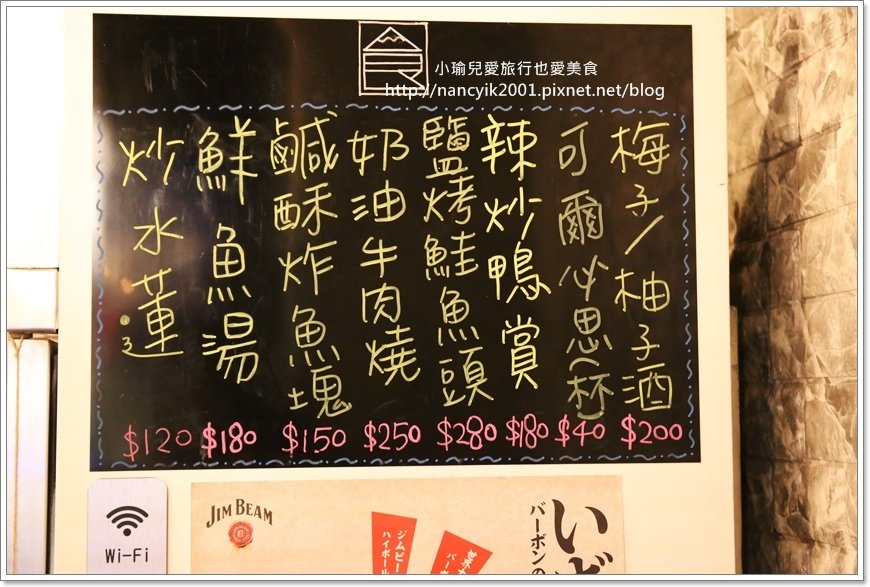 食
小瑜兒愛旅行也愛美食
http://nancyik2001.pixnet.net/blog
梅子/柚子酒
$200
可爾必思(杯)
$40
辣炒鴨賞
$180
鹽烤鮭魚頭
$280
奶油牛肉燒
$250
鹹酥炸魚塊
$150
鮮魚湯
$180
炒水蓮
$120
Wi-Fi
JIM BEAM
ジムビー
ハイボール
バーボンの